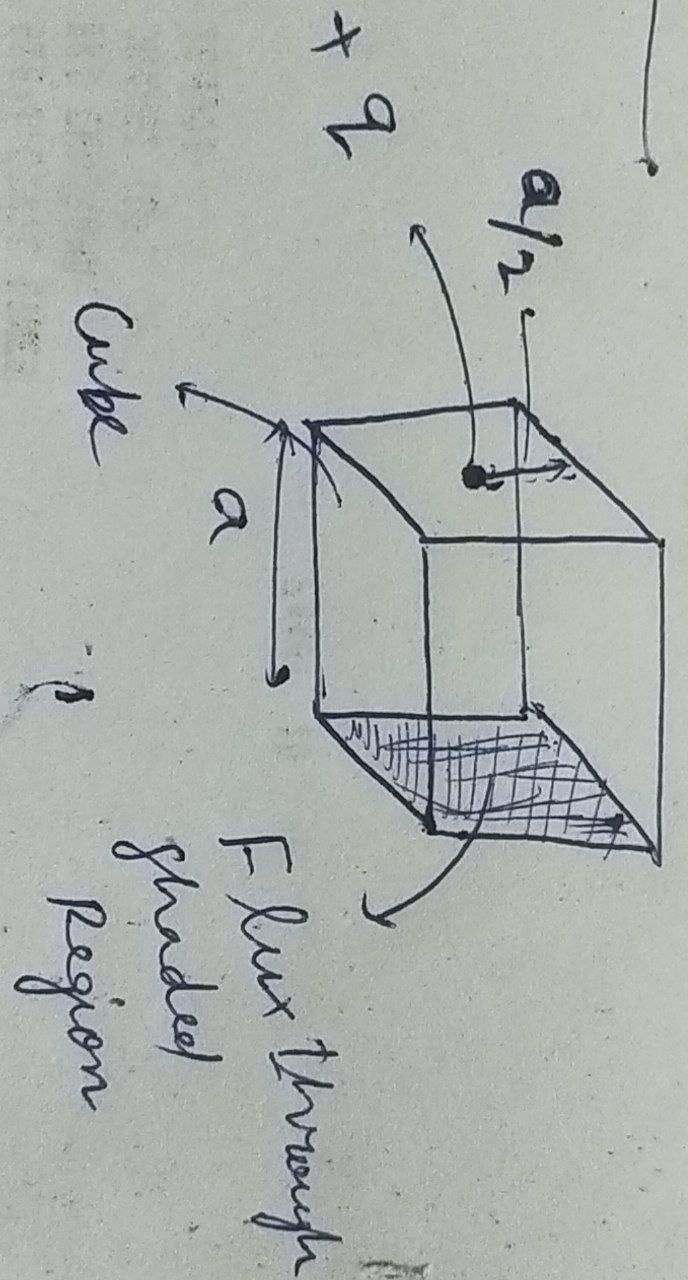 + q
a/2
a
Cube
Flux through
shaded
Region